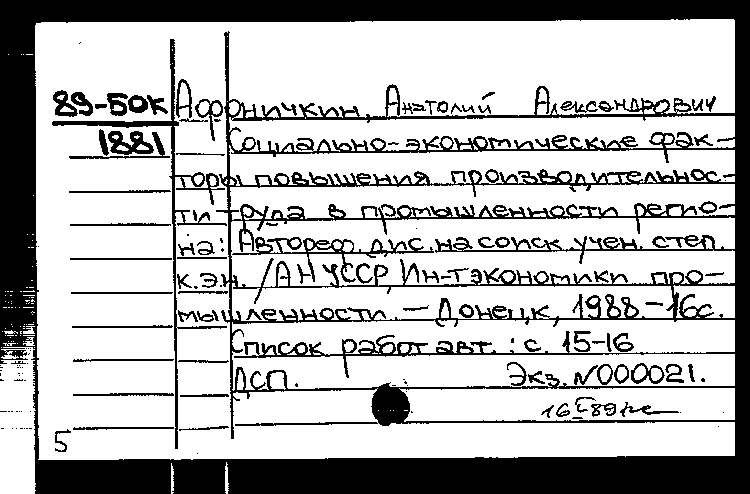 89-50К Афоничкин, Анатолий Александрович
1881 Социально-экономические фак-
торы повышения производительнос-
ти труда в промышленности регио-
на: Автореф. дис. на соиск. учен. степ.
к.э.н. / АН УССР, Ин-т экономики про-
мышленности. — Донецк, 1988 – 16с.
Список работ авт.: с. 15-16
ДСП. Экз. №000021.
16 89
5